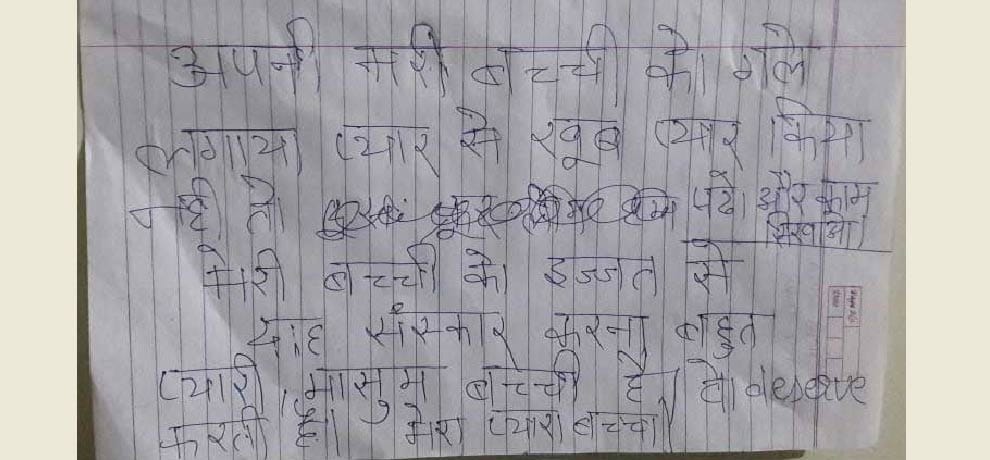 अपनी मरी बच्ची को गले
लगाया प्यार से खूब प्यार किया
नही तो पढे और काम
सिखाओ।
मेरी बच्ची को इज्जत से
दाह संस्कार करना बाहुत
प्यारी, मासुम बच्ची है। वो deserve
करती है। मेरा प्यारा बच्चा